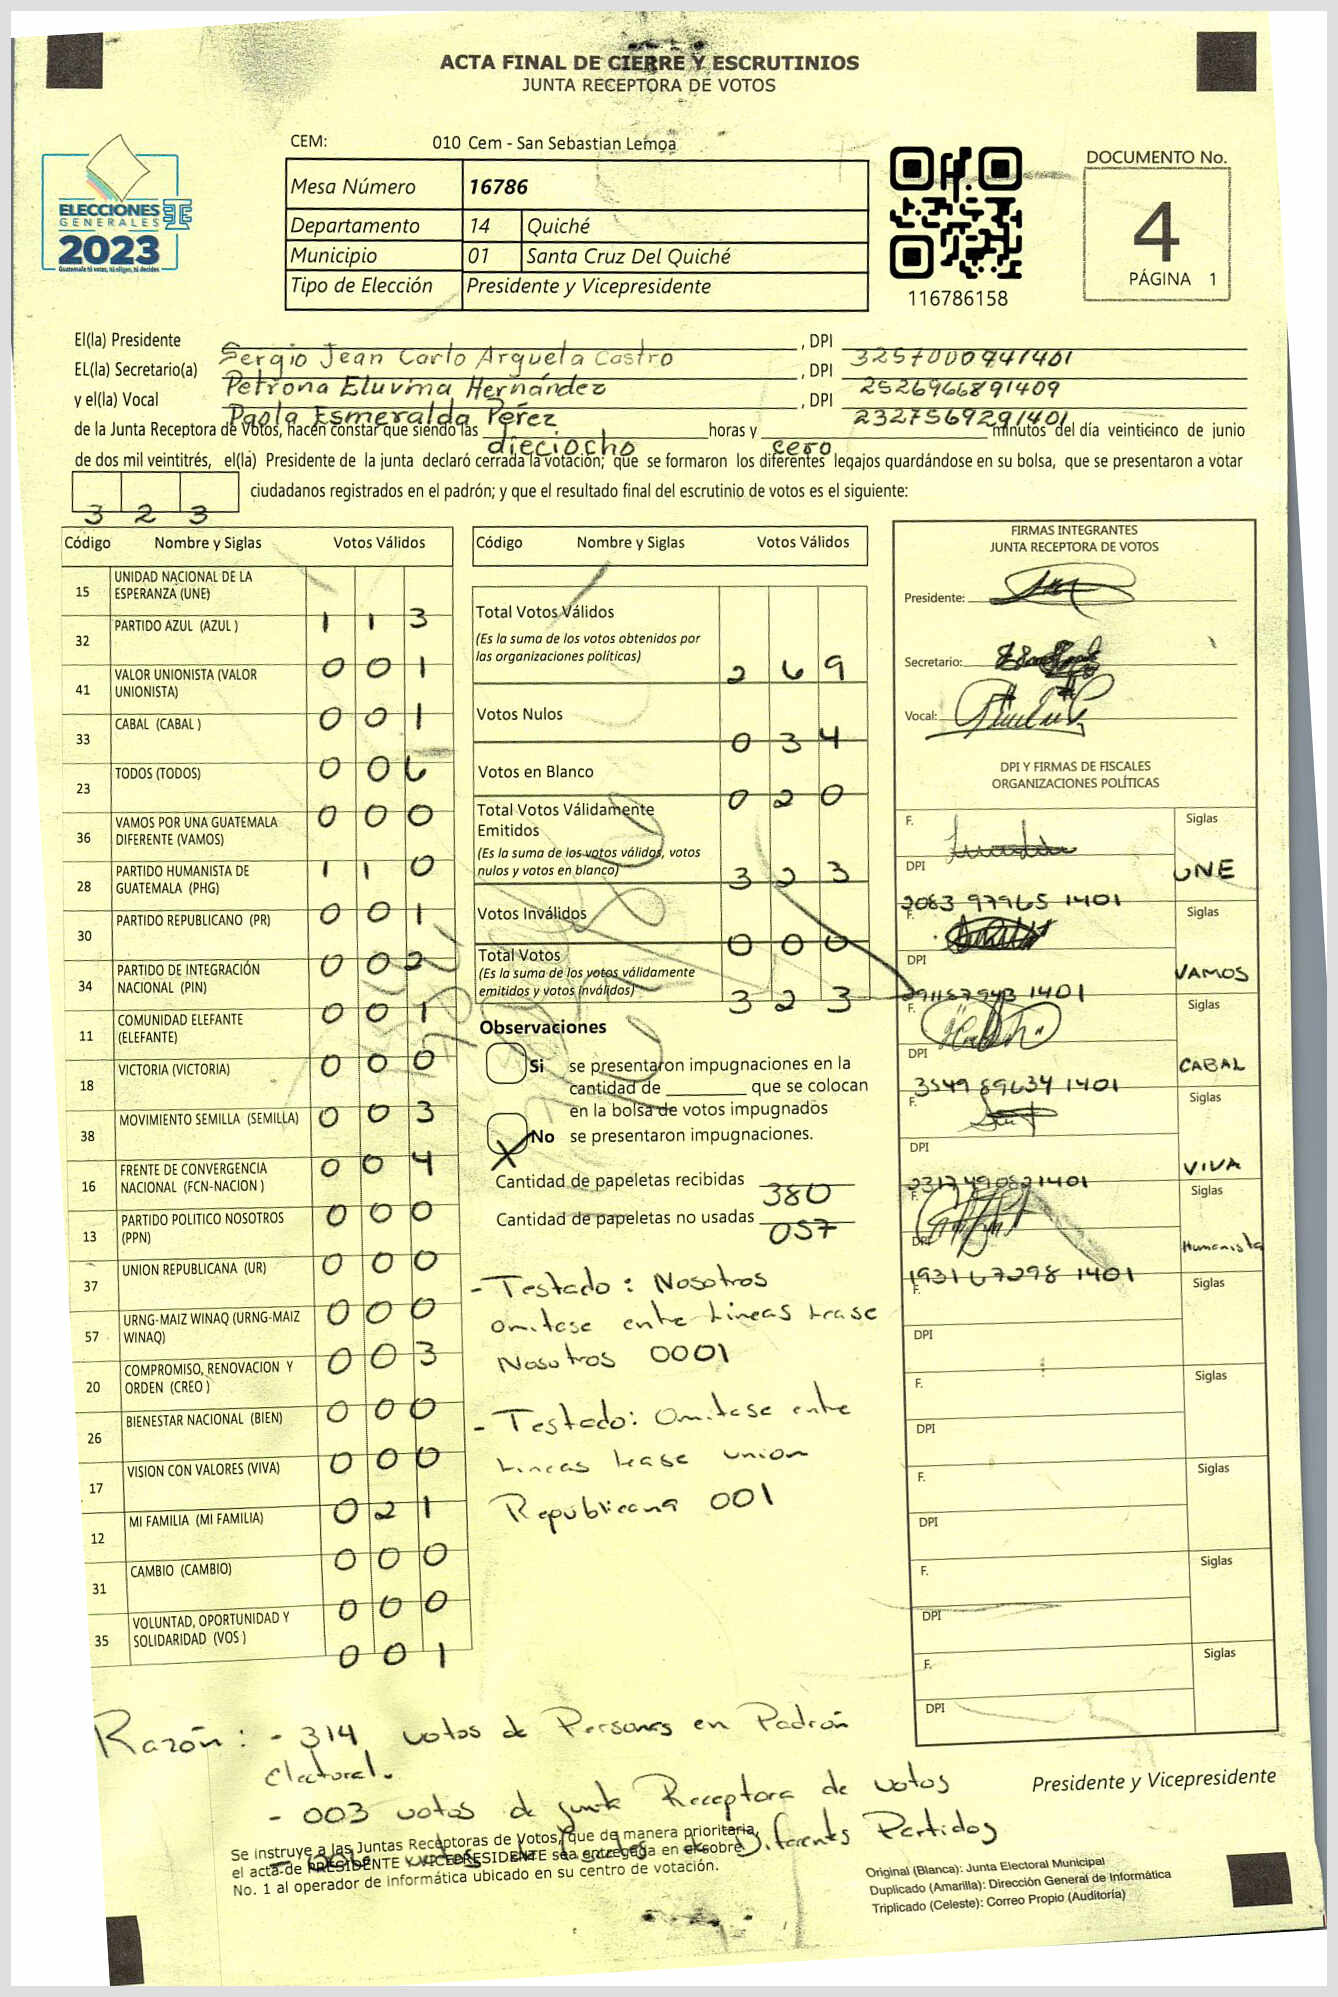 ACTA FINAL DE CIERRE Y ESCRUTINIOS
JUNTA RECEPTORA DE VOTOS
CEM: 010 Cem - San Sebastian Lemoa
Mesa Número 16786
Departamento 14 Quiché
Municipio 01 Santa Cruz Del Quiché
Tipo de Elección Presidente y Vicepresidente
ELECCIONES
GENERALES
2023
Guatemala tú votas, tú eliges, tú decides
116786158
DOCUMENTO No.
4
PÁGINA 1
El(la) Presidente Sergio Jean Carlo Argueta Castro, DPI 3257000941401
EL(la) Secretario(a) Petrona Eluvina Hernández, DPI 2526966891409
y el(la) Vocal Paola Esmeralda Pérez, DPI 2327569291401
de la Junta Receptora de Votos, hacen constar que siendo las dieciocho horas y cero minutos del día veinticinco de junio
de dos mil veintitrés, el(la) Presidente de la junta declaró cerrada la votación; que se formaron los diferentes legajos guardándose en su bolsa, que se presentaron a votar
323 ciudadanos registrados en el padrón; y que el resultado final del escrutinio de votos es el siguiente:
Código Nombre y Siglas Votos Válidos
15 UNIDAD NACIONAL DE LA ESPERANZA (UNE) 1 1 3
32 PARTIDO AZUL (AZUL ) 0 0 1
41 VALOR UNIONISTA (VALOR UNIONISTA) 0 0 1
33 CABAL (CABAL ) 0 0 6
23 TODOS (TODOS) 0 0 0
36 VAMOS POR UNA GUATEMALA DIFERENTE (VAMOS) 1 1 0
28 PARTIDO HUMANISTA DE GUATEMALA (PHG) 0 0 1
30 PARTIDO REPUBLICANO (PR) 0 0 2
34 PARTIDO DE INTEGRACIÓN NACIONAL (PIN) 0 0 1
11 COMUNIDAD ELEFANTE (ELEFANTE) 0 0 0
18 VICTORIA (VICTORIA) 0 0 3
38 MOVIMIENTO SEMILLA (SEMILLA) 0 0 4
16 FRENTE DE CONVERGENCIA NACIONAL (FCN-NACION ) 0 0 0
13 PARTIDO POLITICO NOSOTROS (PPN) 0 0 0
37 UNION REPUBLICANA (UR) 0 0 0
57 URNG-MAIZ WINAQ (URNG-MAIZ WINAQ) 0 0 3
20 COMPROMISO, RENOVACION Y ORDEN (CREO ) 0 0 0
26 BIENESTAR NACIONAL (BIEN) 0 0 0
17 VISION CON VALORES (VIVA) 0 2 1
12 MI FAMILIA (MI FAMILIA) 0 0 0
31 CAMBIO (CAMBIO) 0 0 0
35 VOLUNTAD, OPORTUNIDAD Y SOLIDARIDAD (VOS ) 0 0 1
Código Nombre y Siglas Votos Válidos
Total Votos Válidos 2 6 9
(Es la suma de los votos obtenidos por
las organizaciones políticas)
Votos Nulos 0 3 4
Votos en Blanco 0 2 0
Total Votos Válidamente
Emitidos 3 2 3
(Es la suma de los votos válidos, votos
nulos y votos en blanco)
Votos Inválidos 0 0 0
Total Votos 3 2 3
(Es la suma de los votos válidamente
emitidos y votos inválidos)
Observaciones
Si se presentaron impugnaciones en la
cantidad de ________ que se colocan
en la bolsa de votos impugnados
X No se presentaron impugnaciones.
Cantidad de papeletas recibidas 380
Cantidad de papeletas no usadas 057
- Testado: Nosotros
omitase entre Lineas Lease
Nosotros 0001
- Testado: Omitase entre
Lineas Lease union
Republicana 001
FIRMAS INTEGRANTES
JUNTA RECEPTORA DE VOTOS
Presidente:
Secretario:
Vocal:
DPI Y FIRMAS DE FISCALES
ORGANIZACIONES POLÍTICAS
F. Siglas
DPI UNE
2083 97965 1401
F. Siglas
DPI VAMOS
291157943 1401
F. Siglas
DPI CABAL
3549 89634 1401
F. Siglas
DPI VIVA
2317490821401
F. Siglas
DPI Humanista
1931 67298 1401
F. Siglas
DPI
F. Siglas
DPI
F. Siglas
DPI
F. Siglas
DPI
F. Siglas
DPI
Razón: - 314 votos de Personas en Padrón
Electoral.
- 003 votos de junta Receptora de votos
- 006 votos de fiscales de Diferents Partidos
Presidente y Vicepresidente
Se instruye a las Juntas Receptoras de Votos, que de manera prioritaria,
el acta de PRESIDENTE Y VICEPRESIDENTE sea entregada en el sobre
No. 1 al operador de informática ubicado en su centro de votación.
Original (Blanca): Junta Electoral Municipal
Duplicado (Amarilla): Dirección General de Informática
Triplicado (Celeste): Correo Propio (Auditoría)